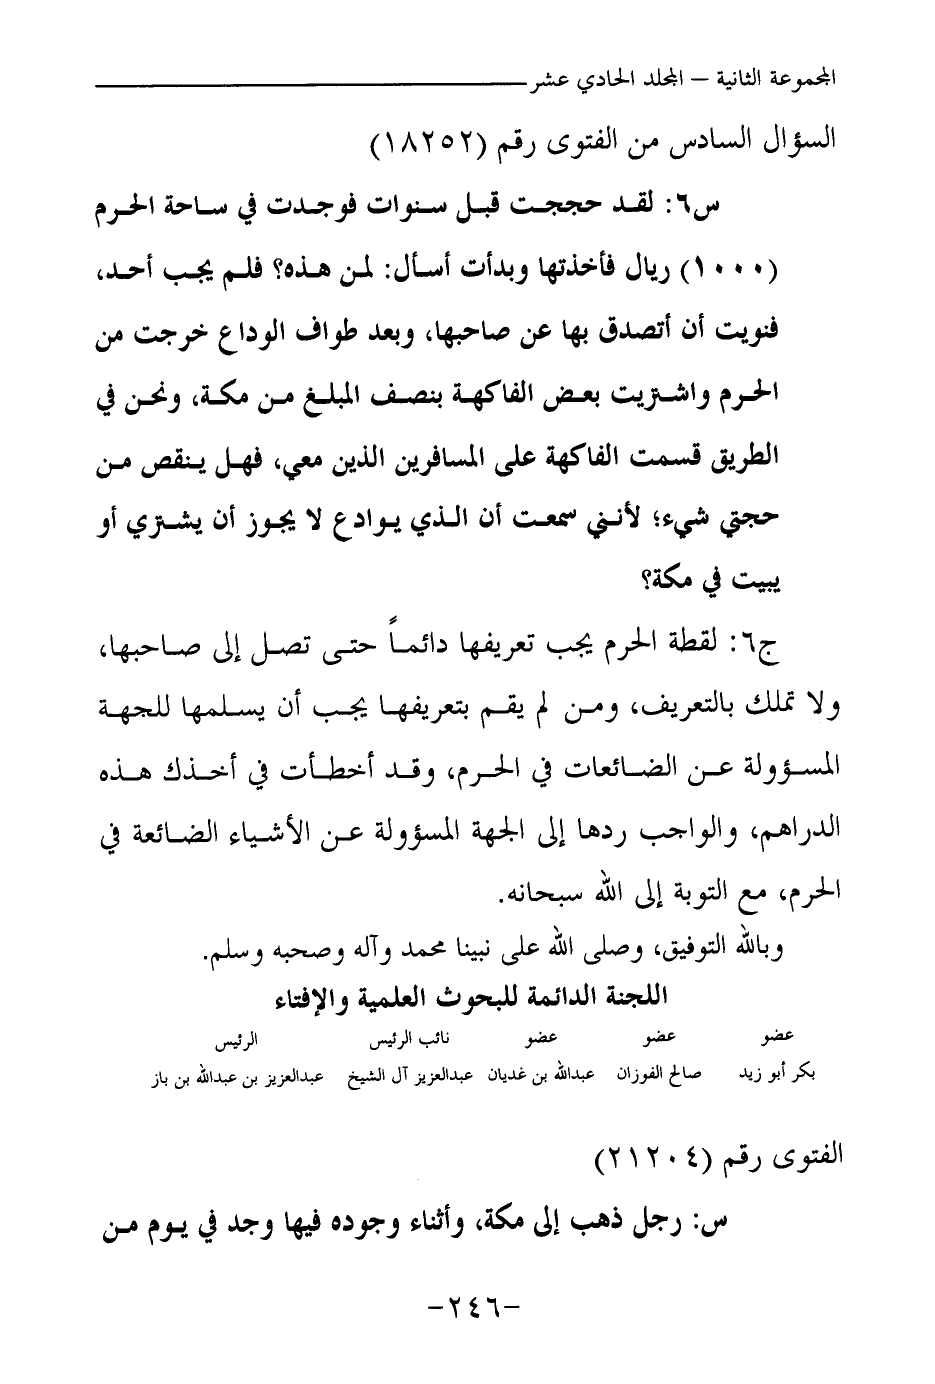 المجموعة الثانية – المجلد الحادي عشر
السؤال السادس من الفتوى رقم (١٨٢٥٢)
س٦: لقد حججت قبل سنوات فوجدت في ساحة الحرم
(١٠٠٠) ريال فأخذتها وبدأت أسأل: لمن هذه؟ فلم يجب أحد،
فنويت أن أتصدق بها عن صاحبها، وبعد طواف الوداع خرجت من
الحرم واشتريت بعض الفاكهة بنصف المبلغ من مكة، ونحن في
الطريق قسمت الفاكهة على المسافرين الذين معي، فهل ينقص من
حجتي شيء؛ لأنني سمعت أن الذي يوادع لا يجوز أن يشتري أو
يبيت في مكة؟
ج٦: لقطة الحرم يجب تعريفها دائماً حتى تصل إلى صاحبها،
ولا تملك بالتعريف، ومن لم يقم بتعريفها يجب أن يسلمها للجهة
المسؤولة عن الضائعات في الحرم، وقد أخطأت في أخذك هذه
الدراهم، والواجب ردها إلى الجهة المسؤولة عن الأشياء الضائعة في
الحرم، مع التوبة إلى الله سبحانه.
وبالله التوفيق، وصلى الله على نبينا محمد وآله وصحبه وسلم.
اللجنة الدائمة للبحوث العلمية والإفتاء
عضو عضو عضو نائب الرئيس الرئيس
بكر أبو زيد صالح الفوزان عبدالله بن غديان عبدالعزيز آل الشيخ عبدالعزيز بن عبدالله بن باز
الفتوى رقم (٢١٢٠٤)
س: رجل ذهب إلى مكة، وأثناء وجوده فيها وجد في يوم من
-٢٤٦-